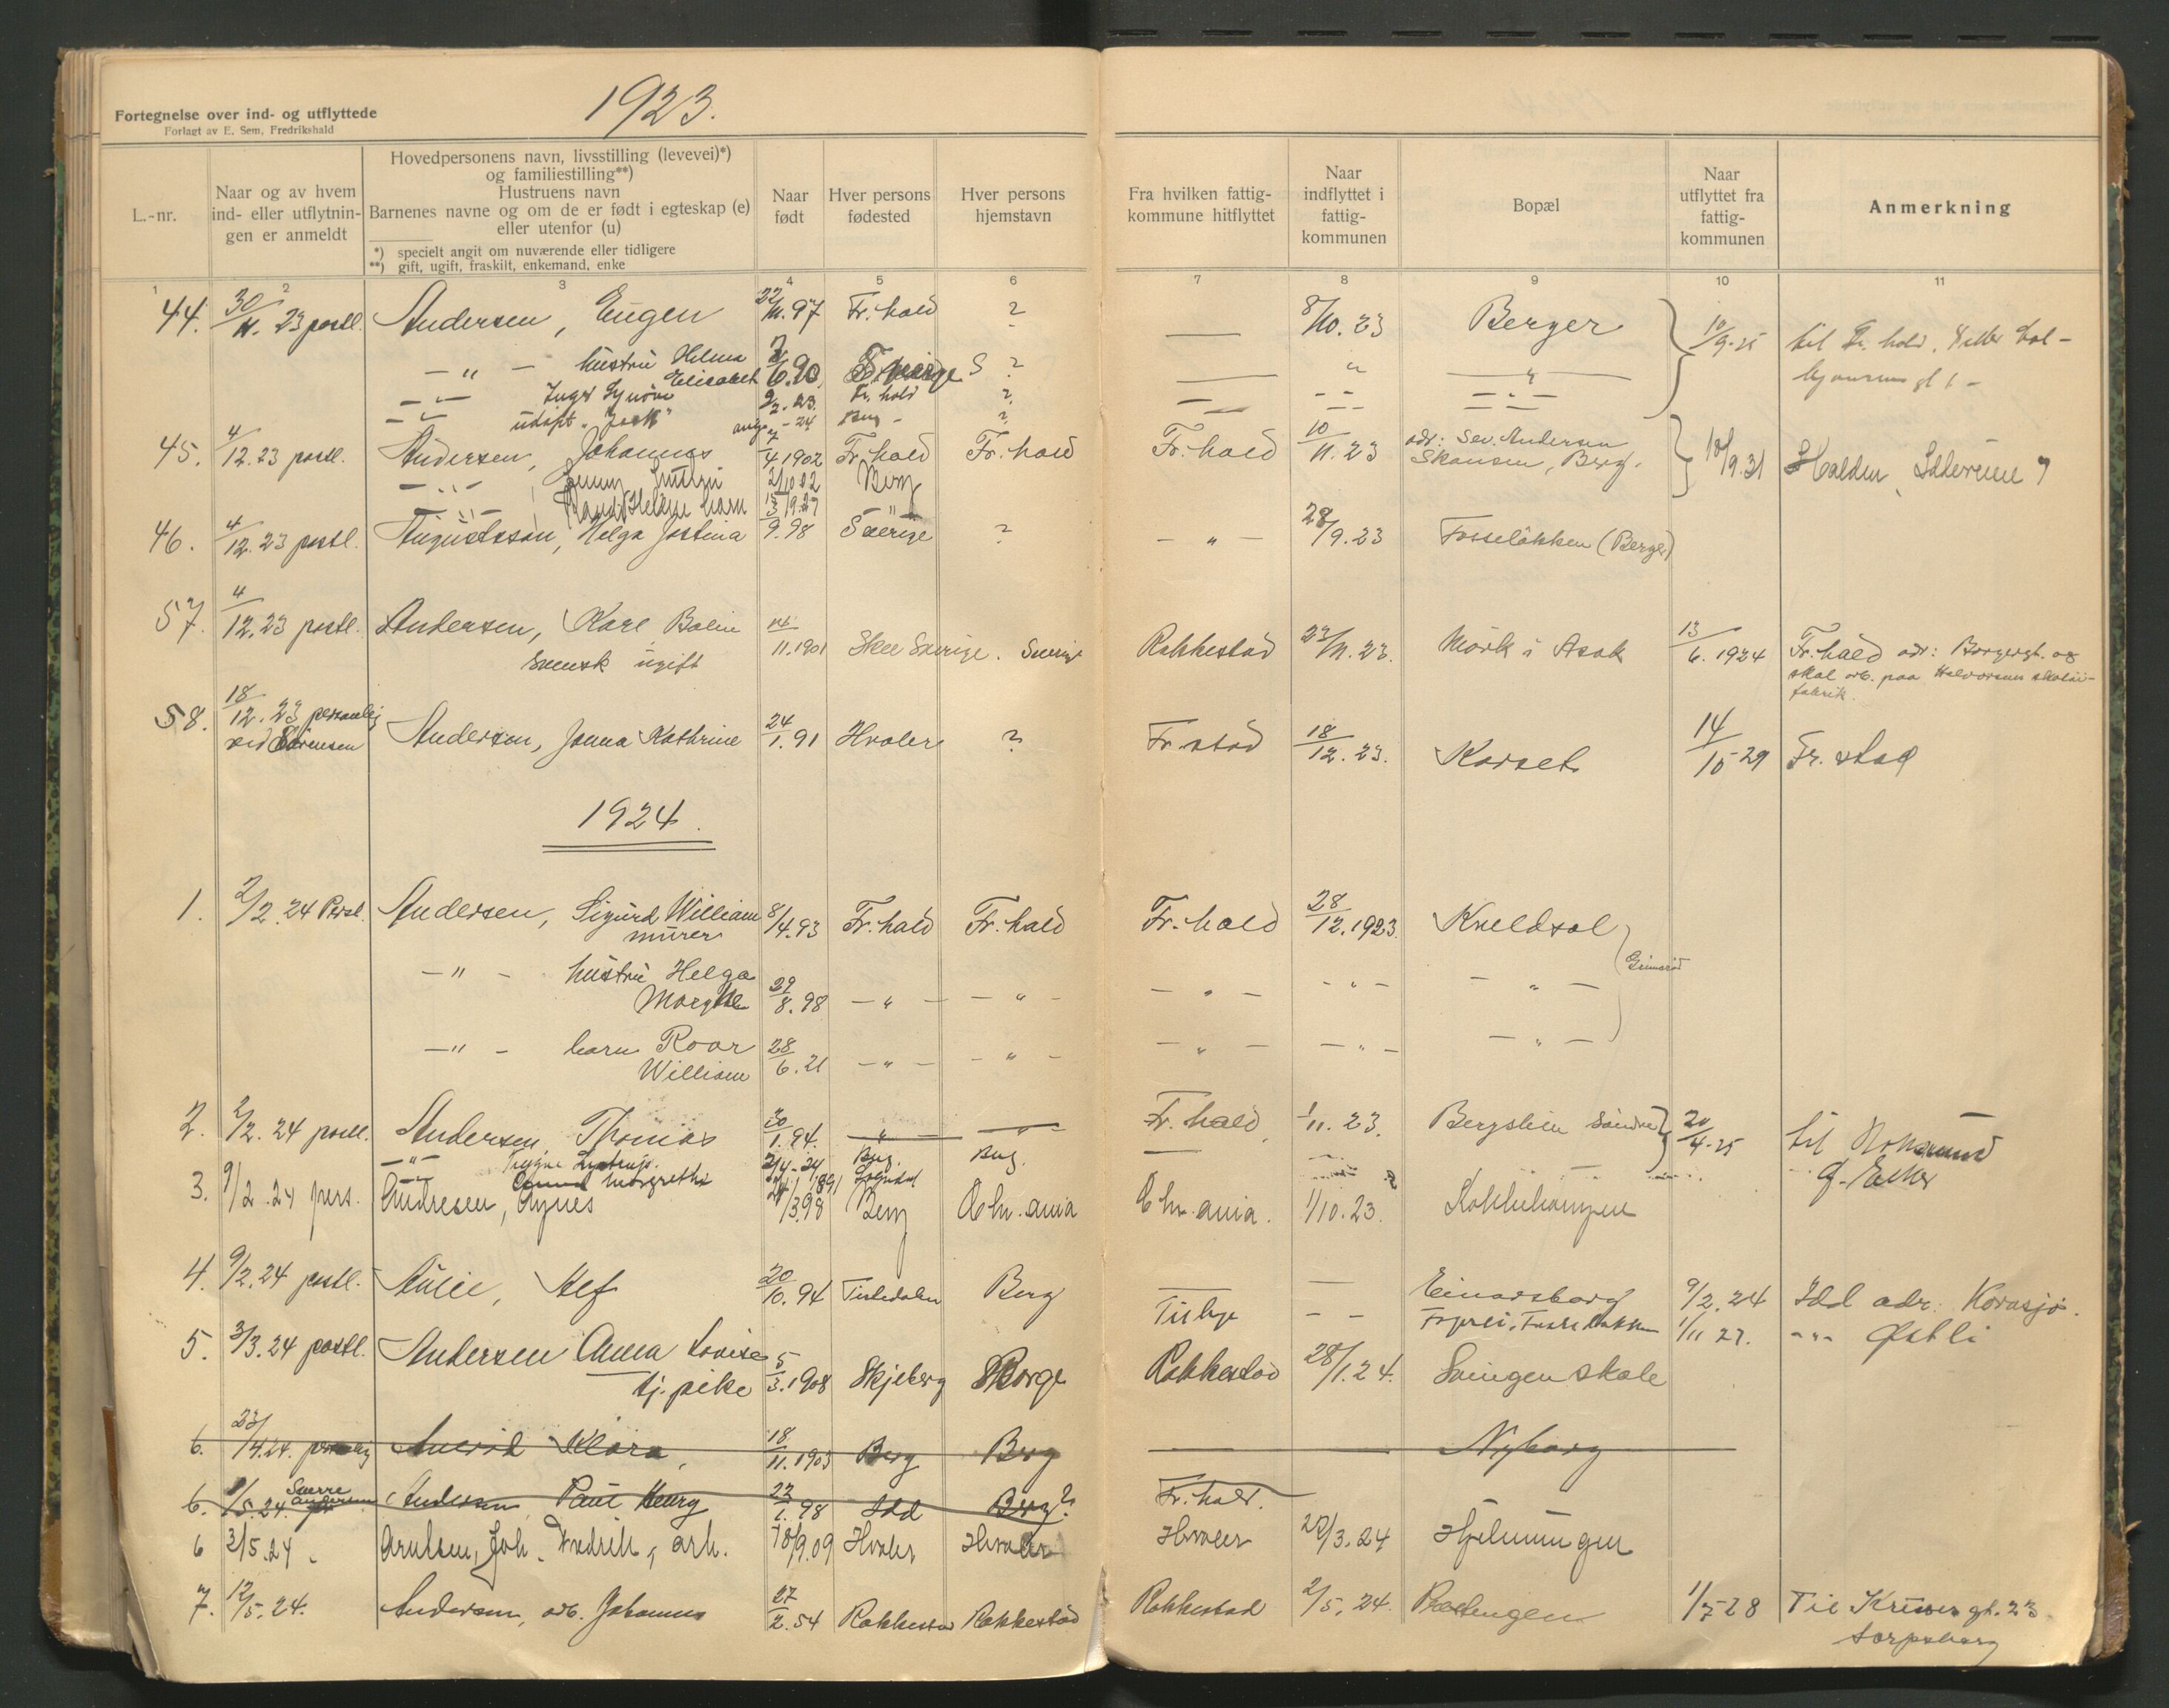 1923.
Fortegnelse over ind- og utflyttede
Forlagt av E. Sem, Fredrikshald
L.-nr.
Naar og av hvem ind- eller utflytnin-gen er anmeldt
Hovedpersonens navn, livsstilling (levevei)*)
og familiestilling**)
Hustruens navn
Barnenes navne og om de er født i egteskap (e)
eller utenfor (u)
*) specielt angit om nuværende eller tidligere
**) gift, ugift, fraskilt, enkemand, enke
Naar født
Hver persons fødested
Hver persons hjemstavn
Fra hvilken fattig-kommune hitflyttet
Naar indflyttet i fattig-kommunen
Bopæl
Naar utflyttet fra fattig-kommunen
Anmerkning
1 2 3 4 5 6 7 8 9 10 11
44. 30/11. 23 postl. Andersen, Eugen 22/11. 97 Fr. hald ? — 8/10. 23 Berger 10/9-25 til Fr. hald
— " — hustru Helma Elisabeth 6.90 Sverige S ? — " — " —
— " — Inger Synöve 9/2. 23. Fr. hald ?
— " — udöpt "Jack" aug. - 24 Berg - ?
45. 4/12. 23 postl. Andersen, Johannes 4/4 1902 Fr. hald Fr. hald Fr. hald 10/11. 23 adr: Sev. Andersen Skansen, Berg. 18/9.31 Halden
— " — Jenny 2/10 02 Berg
— " — Randi Helene barn 15/3 1927 "
46. 4/12. 23 postl. Augustsson, Helga Jostina 9.98 Sverige ? — " — 28/9. 23 Fosseløkken (Berger)
57. 4/12. 23 postl. Andersen, Karl Bolin 14/11. 1901 Skee Sverige. Sverige Rakkestad 23/11. 23. Mörk i Asak 13/6. 1924 Fr. hald adr: Borgergt. og
Svensk ugift skal arb. paa Halvorsens skotøi-
fabrik.
58. 18/12. 23 personlig ved Sörensen Andersen, Janna Kathrine 24/1. 91 Hvaler ? Fr. stad 18/12. 23. Karset 14/10 29 Fr. stad
1924.
1. 2/2. 24 Persl. Andersen, Sigurd William 8/4.93 Fr. hald Fr. hald Fr. hald 28/12. 1923. Kneldsol
murer
— " — hustru Helga 29/8. 98 — " — — " — — " — — " — — " — Grimsröd
— " — barn Roar 28/6. 21 — " — — " — — " — — " — — " —
William
2. 2/2. 24 postl. Andersen, Thomas 20/1. 94. — " — — " — Fr. hald 1/11. 23. Bergstien Söndre 20/4-25 til
— " — Trygve 2/4-24 Berg. Berg.
Margrethe 1891
3. 9/2. 24 pers. Andresen, Agnes 24/3.98 Berg Chr. ania Chr. ania. 1/10. 23.
4. 9/2. 24 postl. Aulie, Alf 20/10. 94 Tistedalen Berg — — Einarsborg 9/2. 24 Idd adr: Korasjö.
— — 1/11 27. — " — Østli
5. 3/3. 24 postl. Andersen Anna Lovise 5/3. 1908 Skjeberg Borge Rakkestad 28/1. 24. Svingen skole
tj. pike
6. 23/4. 24. personlig Klara, 18/11. 1903 Berg Berg — Nyborg
6. 1/5. 24. Sverre Andersen Andersen, Paul Henry 23/1. 98 Idd Berg? Fr. hald.
6 3/5. 24 " Arntsen, Joh. Fredrik, arb. 18/9.09 Hvaler Hvaler Hvaler 22/3. 24 Hjelmungen
7. 12/5. 24. Andersen, arb. Johannes 27/2. 54 Rakkestad Rakkestad Rakkestad 2/5. 24. 1/7-28 Til Kruses gt. 23
Sarpsborg